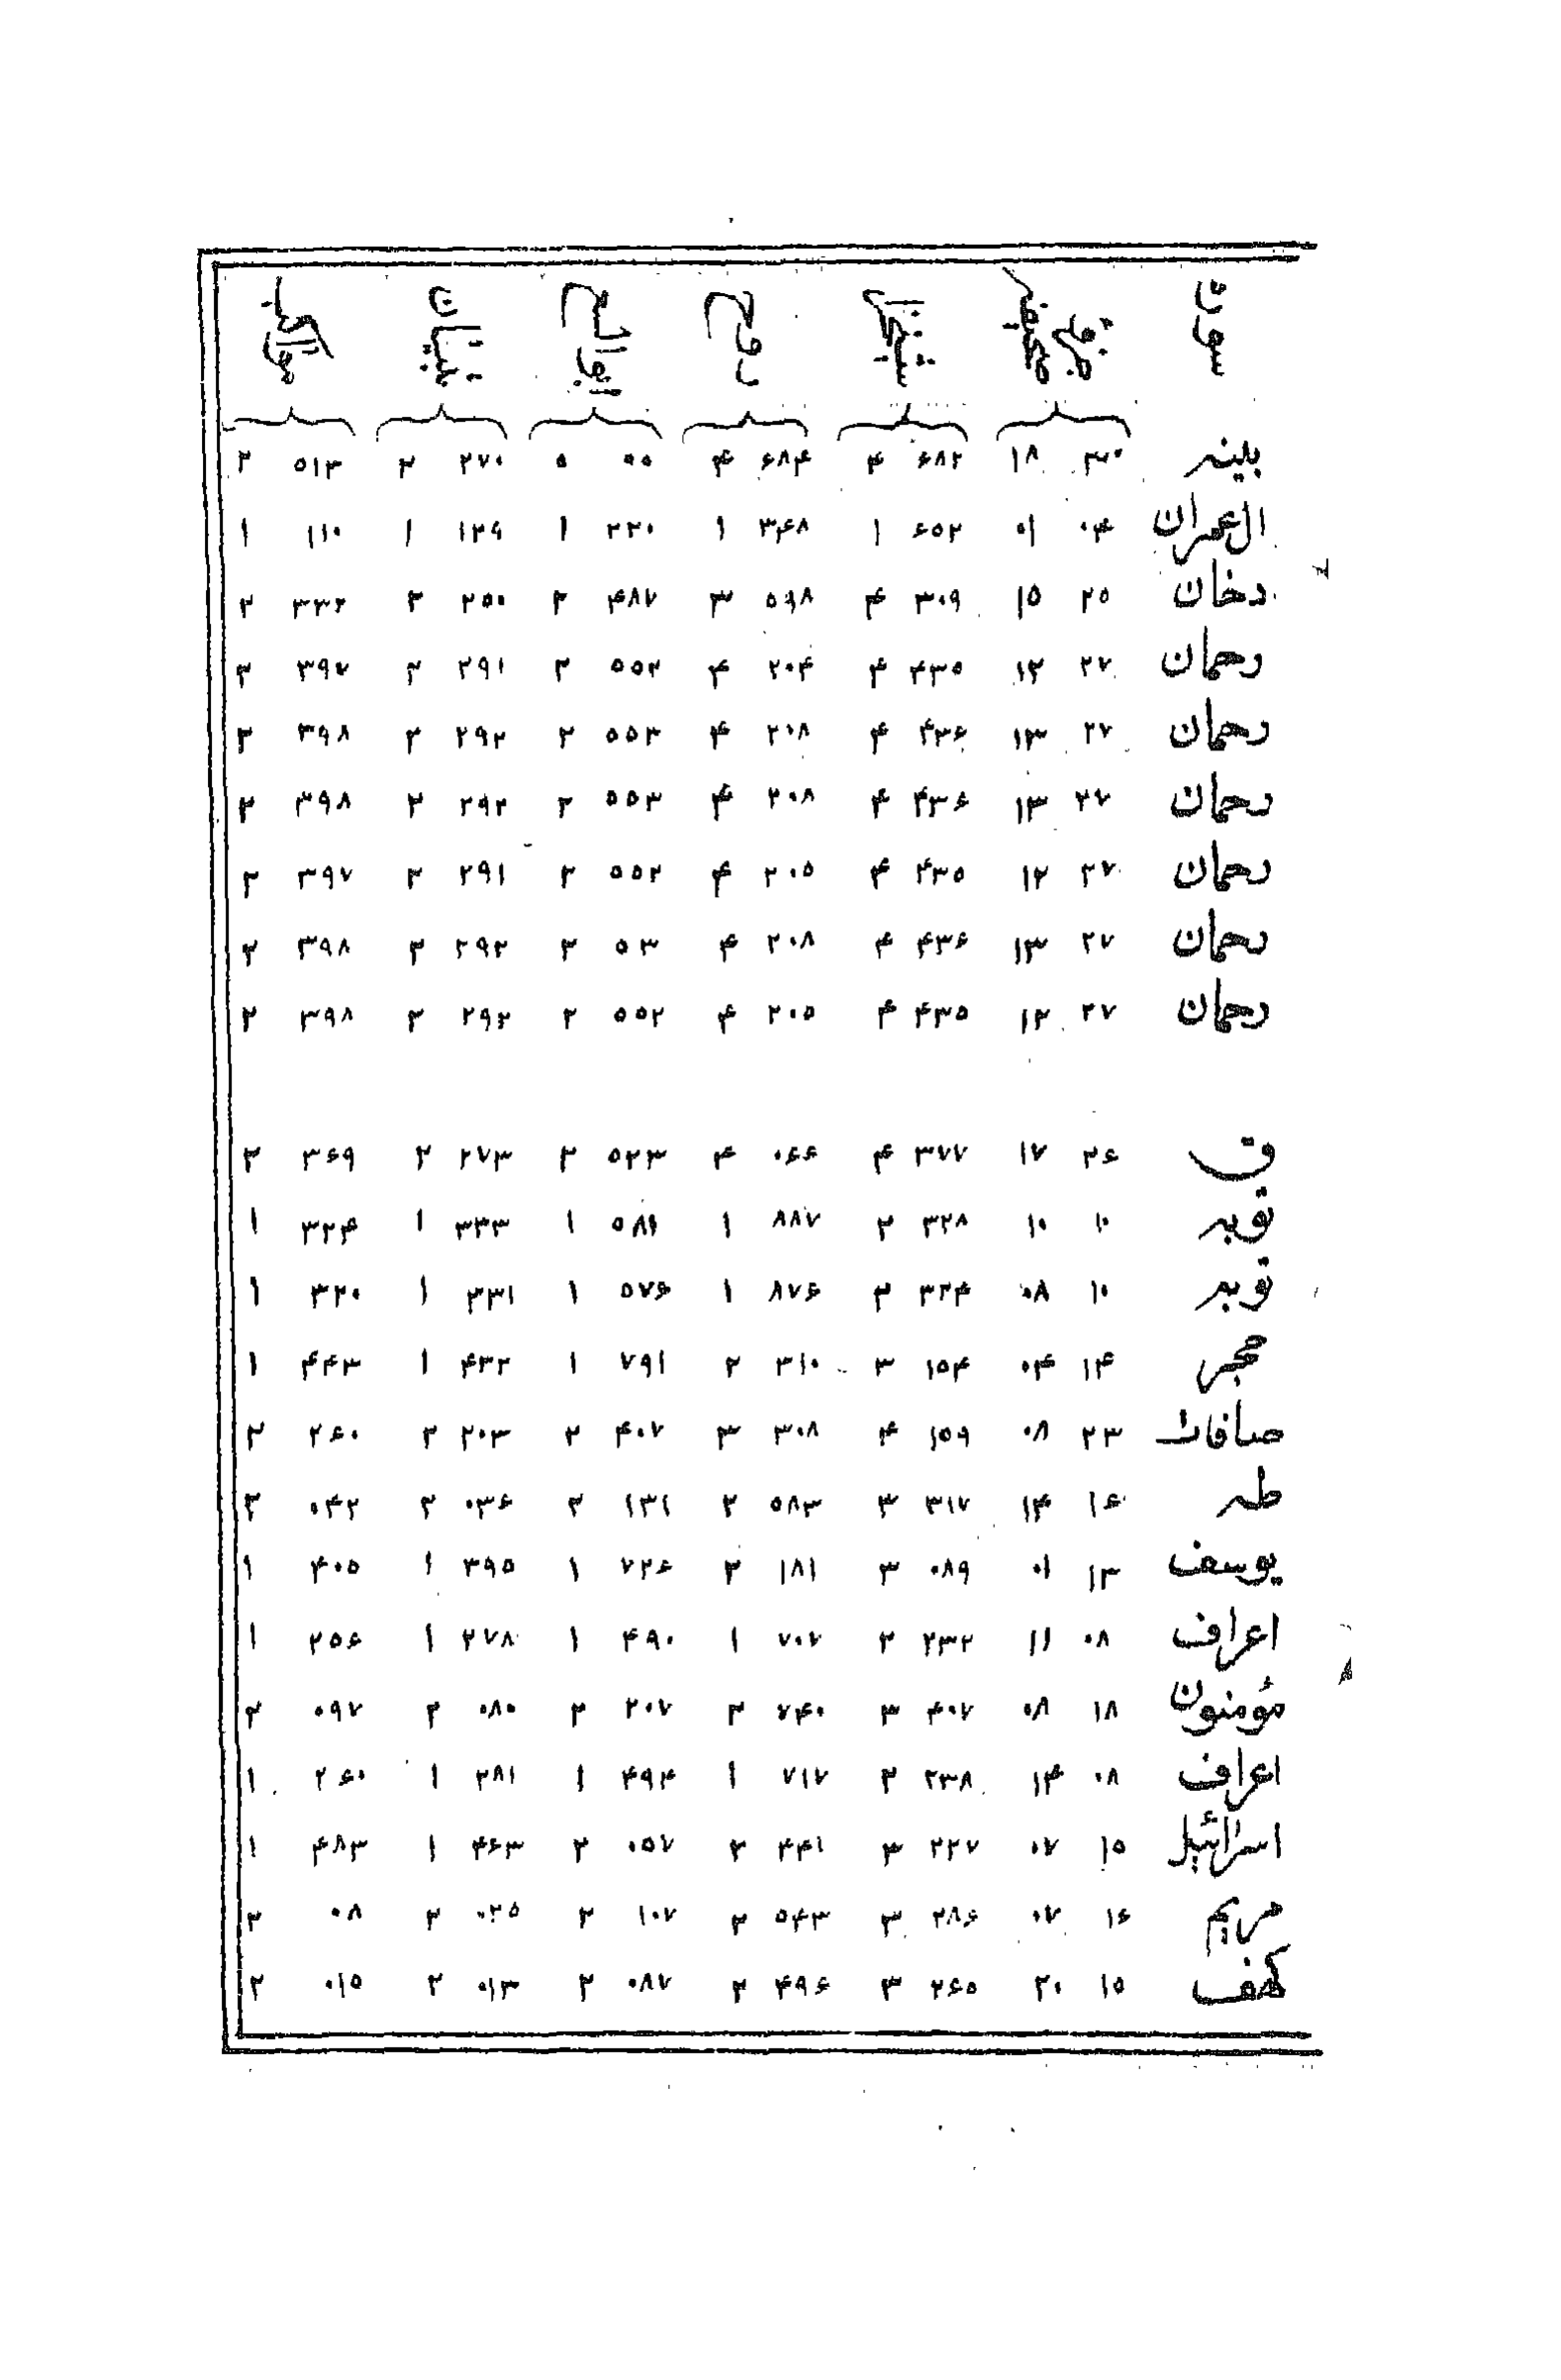 سورة جزء صفحه شیخ روح نور تبیان مواهب
بینه ۳۰ ۱۸ ۶۸۲ ۴ ۶۸۴ ۴ ۵۵ ۵ ۲۷۰ ۲ ۵۱۳ ۲
ال عمران ۰۴ ۰۱ ۶۵۲ ۱ ۳۴۸ ۱ ۲۲۰ ۱ ۱۲۹ ۱ ۱۱۰ ۱
دخان ۲۵ ۱۵ ۳۰۹ ۴ ۵۹۸ ۳ ۴۸۷ ۲ ۲۵۰ ۲ ۳۳۲ ۲
رحمان ۲۷ ۱۲ ۴۳۵ ۴ ۲۰۴ ۴ ۵۵۲ ۲ ۲۹۱ ۲ ۳۹۷ ۲
رحمان ۲۷ ۱۳ ۴۳۶ ۴ ۲۰۸ ۴ ۵۵۳ ۲ ۲۹۲ ۲ ۳۹۸ ۲
رحمان ۲۷ ۱۳ ۴۳۶ ۴ ۲۰۸ ۴ ۵۵۳ ۲ ۲۹۲ ۲ ۳۹۸ ۲
رحمان ۲۷ ۱۲ ۴۳۵ ۴ ۲۰۵ ۴ ۵۵۲ ۲ ۲۹۱ ۲ ۳۹۷ ۲
رحمان ۲۷ ۱۳ ۴۳۶ ۴ ۲۰۸ ۴ ۵۳ ۲ ۲۹۲ ۲ ۳۹۸ ۲
رحمان ۲۷ ۱۲ ۴۳۵ ۴ ۲۰۵ ۴ ۵۵۲ ۲ ۲۹۲ ۲ ۳۹۸ ۲
ق ۲۶ ۱۷ ۳۷۷ ۴ ۰۶۶ ۴ ۵۲۳ ۲ ۲۷۳ ۲ ۳۶۹ ۲
توبه ۱۰ ۱۰ ۳۲۸ ۲ ۸۸۷ ۱ ۵۸۱ ۱ ۳۳۳ ۱ ۳۲۴ ۱
توبه ۱۰ ۰۸ ۳۲۴ ۲ ۸۷۶ ۱ ۵۷۶ ۱ ۳۳۱ ۱ ۳۲۰ ۱
حجر ۱۴ ۰۴ ۱۵۴ ۳ ۳۱۰ ۲ ۷۹۱ ۱ ۴۳۲ ۱ ۴۴۳ ۱
صافات ۲۳ ۰۸ ۱۵۹ ۴ ۳۰۸ ۳ ۴۰۷ ۲ ۲۰۳ ۲ ۲۶۰ ۲
طه ۱۶ ۱۴ ۳۱۷ ۳ ۵۸۳ ۲ ۱۳۱ ۲ ۰۳۶ ۲ ۰۴۲ ۲
یوسف ۱۳ ۰۱ ۰۸۹ ۳ ۱۸۱ ۲ ۷۲۶ ۱ ۳۹۵ ۱ ۴۰۵ ۱
اعراف ۰۸ ۱۱ ۲۳۲ ۲ ۷۰۷ ۱ ۴۹۰ ۱ ۲۷۸ ۱ ۲۵۶ ۱
مؤمنون ۱۸ ۰۸ ۴۰۷ ۳ ۷۴۰ ۲ ۲۰۷ ۲ ۰۸۰ ۲ ۰۹۷ ۲
اعراف ۰۸ ۱۴ ۲۳۸ ۲ ۷۱۷ ۱ ۴۹۴ ۱ ۲۸۱ ۱ ۲۶۰ ۱
اسرائیل ۱۵ ۰۷ ۲۲۷ ۳ ۴۴۱ ۲ ۰۵۷ ۲ ۴۶۳ ۱ ۴۸۳ ۱
مریم ۱۶ ۰۷ ۲۸۶ ۳ ۵۴۳ ۲ ۱۰۷ ۲ ۰۲۵ ۲ ۰۸ ۲
کهف ۱۵ ۲۰ ۲۶۵ ۳ ۴۹۶ ۲ ۰۸۷ ۲ ۰۱۳ ۲ ۰۱۵ ۲